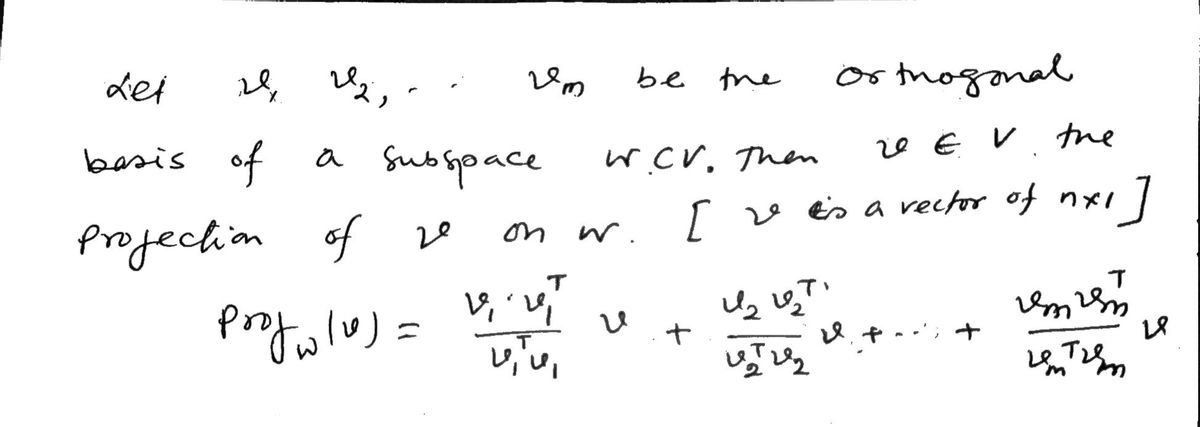 Let v₁, v₂, .. vₘ be the orthogonal
basis of a subspace W⊂V. Then v ∈ V. the
projection of v on W. [ v is a vector of n×1 ]
Proj_W(v) = (v₁·v₁ᵀ)/(v₁ᵀv₁) v + (v₂v₂ᵀ)/(v₂ᵀv₂) v + ... + (vₘvₘᵀ)/(vₘᵀvₘ) v